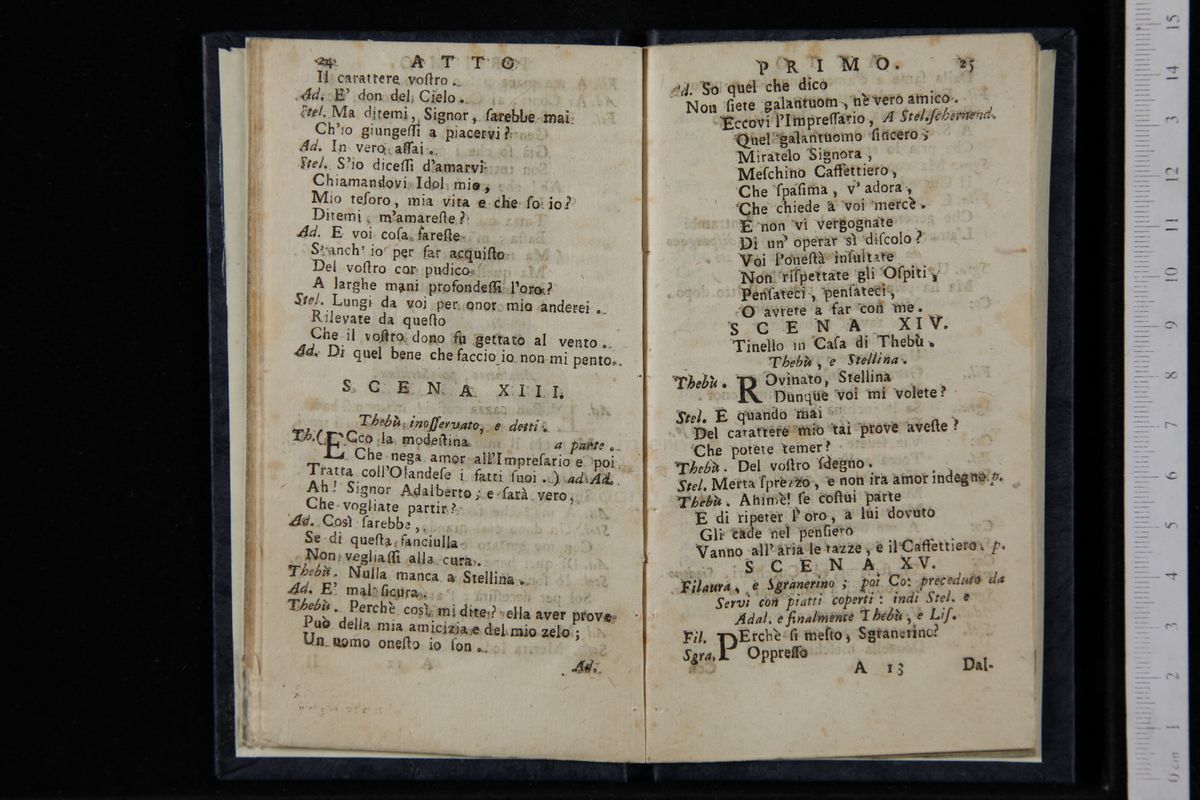 24 ATTO
Il carattere voſtro.
Ad. E' don del Cielo.
Stel. Ma ditemi, Signor, ſarebbe mai
Ch'io giungeſſi a piacervi?
Ad. In vero aſſai.
Stel. S'io diceſſi d'amarvi
Chiamandovi Idol mio,
Mio teſoro, mia vita e che ſo io?
Ditemi m'amareſte?
Ad. E voi coſa fareſte
S'anch' io per far acquiſto
Del voſtro cor pudico
A larghe mani profondeſſi l'oro?
Stel. Lungi da voi per onor mio anderei.
Rilevate da queſto
Che il voſtro dono fù gettato al vento.
Ad. Di quel bene che faccio io non mi pento.
SCENA XIII.
Thebù inoſſervato, e detti.
Th. (ECco la modeſtina a parte.
Che nega amor all'Impreſario e poi
Tratta coll'Olandeſe i fatti ſuoi.) ad Ad.
Ah! Signor Adalberto; e ſarà vero,
Che vogliate partir?
Ad. Così ſarebbe,
Se di queſta fanciulla
Non vegliaſſi alla cura.
Thebù. Nulla manca a Stellina.
Ad. E' mal ſicura.
Thebù. Perchè così mi dite? ella aver prove
Può della mia amicizia e del mio zelo;
Un uomo oneſto io ſon.
Ad.
PRIMO. 25
Ad. So quel che dico
Non ſiete galantuom, nè vero amico.
Eccovi l'Impreſſario, A Stel. ſchernend.
Quel galantuomo ſincero;
Miratelo Signora,
Meſchino Caffettiero,
Che ſpaſima, v' adora,
Che chiede a voi mercè.
E non vi vergognate
Di un' operar sì diſcolo?
Voi l'oneſtà inſultate
Non riſpettate gli Oſpiti,
Penſateci, penſateci,
O avrete a far con me.
SCENA XIV.
Tinello in Caſa di Thebù.
Thebù, e Stellina.
Thebù. ROvinato, Stellina
Dunque voi mi volete?
Stel. E quando mai
Del carattere mio tai prove aveſte?
Che potete temer?
Thebù. Del voſtro ſdegno.
Stel. Merta ſprezzo, e non ira amor indegno. p.
Thebù. Ahimè! ſe coſtui parte
E di ripeter l'oro, a lui dovuto
Gli cade nel penſiero
Vanno all'aria le tazze, e il Caffettiero. p.
SCENA XV.
Filaura, e Sgranerino; poi Co: preceduto da
Servi con piatti coperti: indi Stel. e
Adal. e finalmente Thebù, e Liſ.
Fil. PErchè ſi meſto, Sgranerino?
Sgra. Oppreſſo
A 13 Dal-